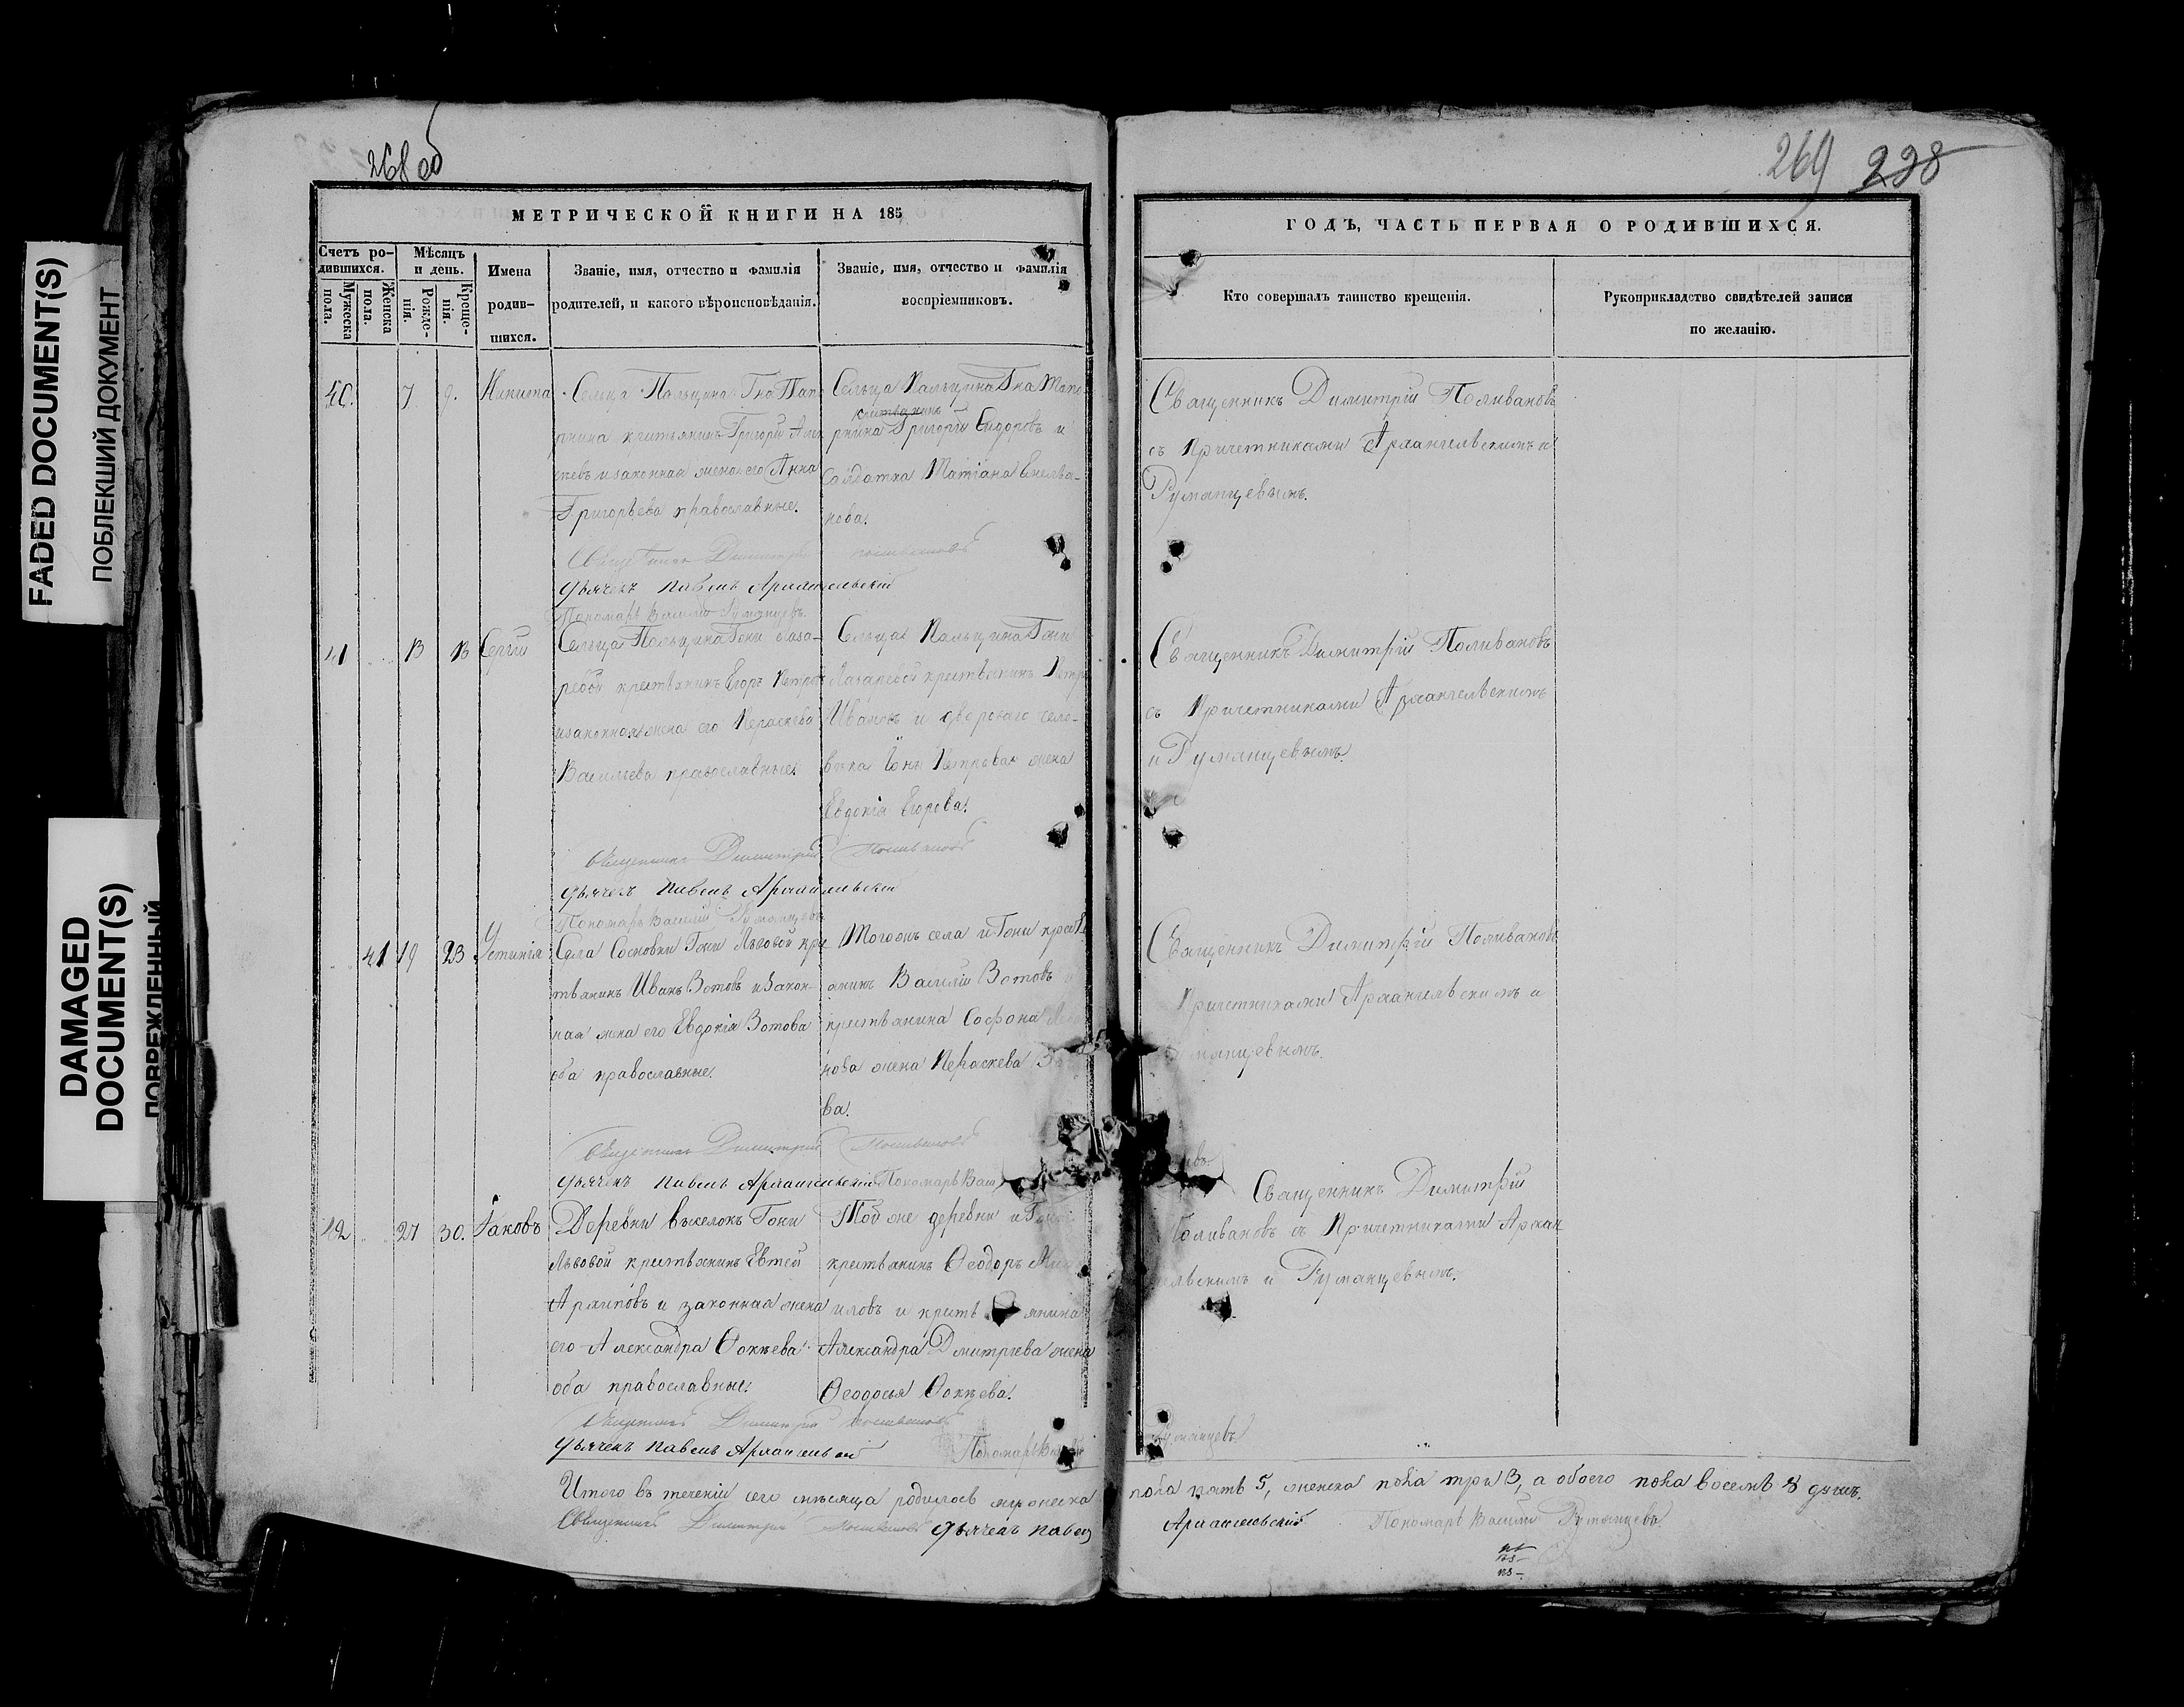 FADED DOCUMENT(S)
ПОБЛЕКШИЙ ДОКУМЕНТ
DAMAGED
DOCUMENT(S)
ПОВРЕЖДЕННЫЙ
268 об
МЕТРИЧЕСКОЙ КНИГИ НА 185
Счетъ ро-
дившихся.
Мужеска
пола.
Женска
пола.
Мѣсяцъ
и день.
Рожде-
нія.
Креще-
нія.
Имена
родив-
шихся.
Званіе, имя, отчество и фамилія
родителей, и какого вѣроисповѣданія.
Званіе, имя, отчество и фамилія
воспріемниковъ.
40.
7
9.
Никита
Сельца Пальцина Гна
крестьянинъ Григорій
и законная жена его Анна
Григорьева православные.
Сельца Пальцина Гна
крестьянинъ
Григорій Сидоровъ и
Солдатка Татіана
нова.
Священникъ Димитрій Поливановъ
Дьячекъ Павелъ Архангельскій
Пономарь Василій Румянцевъ.
41
13
13
Сергій
Сельца Пальцина Гжи Лаза-
ревой крестьянинъ Егоръ Петровъ
и законная жена его Параскева
Васильева православные.
Сельца Пальцина Гжи
Лазаревой крестьянинъ Петръ
Ивановъ и двороваго чело-
вѣка Іоны Петрова жена
Евдокія Егорова.
Священникъ Димитрій Поливановъ
Дьячекъ Павелъ Архангельскій
Пономарь Василій Румянцевъ
41
19
23
Устинія
Села Сосновки Гжи Львовой кре
стьянинъ Иванъ Зотовъ и закон-
ная жена его Евдокія Зотова
оба православные.
Тогожъ села и Гжи кресть
янинъ Василій Зотовъ
крестьянина Софона
нова жена Пераскева
ва.
Священникъ Димитрій Поливановъ
Дьячекъ Павелъ Архангельскій Пономарь Васил
42
27
30.
Іаковъ
Деревни выселокъ Гжи
Львовой крестьянинъ Евтей
Архиповъ и законная жена
его Александра Фокѣева
оба православные.
Той же деревни и Гжи
крестьянинъ Ѳеодоръ
иловъ и кресть янина
Александра Дмитріева жена
Ѳеодосья Фокѣева.
Священникъ Димитрій Поливановъ
Дьячекъ Павелъ Архангельскій
Пономарь
Итого въ теченіи сего мѣсяца родилось мужеска
Священникъ Димитрій Поливановъ Дьячекъ Павелъ
269 228
ГОДЪ, ЧАСТЬ ПЕРВАЯ О РОДИВШИХСЯ.
Кто совершалъ таинство крещенія.
Рукоприкладство свидѣтелей записи
по желанію.
Священникъ Димитрій Поливановъ
съ Причетниками Архангельскимъ и
Румянцевымъ.
Священникъ Димитрій Поливановъ
съ Причетниками Архангельскимъ
и Румянцевымъ.
Священникъ Димитрій Поливановъ
Причетниками Архангельскимъ и
мянцевымъ.
евъ.
Священникъ Димитрій
Поливановъ съ Причетниками Архан
гельскимъ и Румянцевымъ.
Румянцевъ
пола пять 5, женска пола три 3, а обоего пола восемь 8 душъ.
Архангельскій Пономарь Василій Румянцевъ.